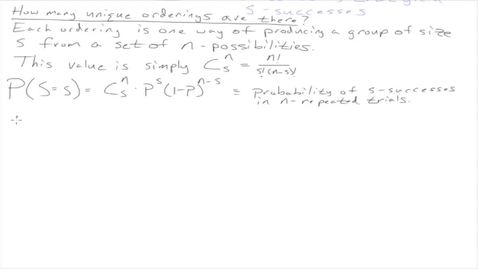 s-successes
How many unique orderings are there?
Each ordering is one way of producing a group of size
s from a set of n-possibilities.
This value is simply Cₛⁿ = n!/s!(n-s)!
P(S=s) = Cₛⁿ · pˢ(1-p)ⁿ⁻ˢ = Probability of s-successes
in n-repeated trials.